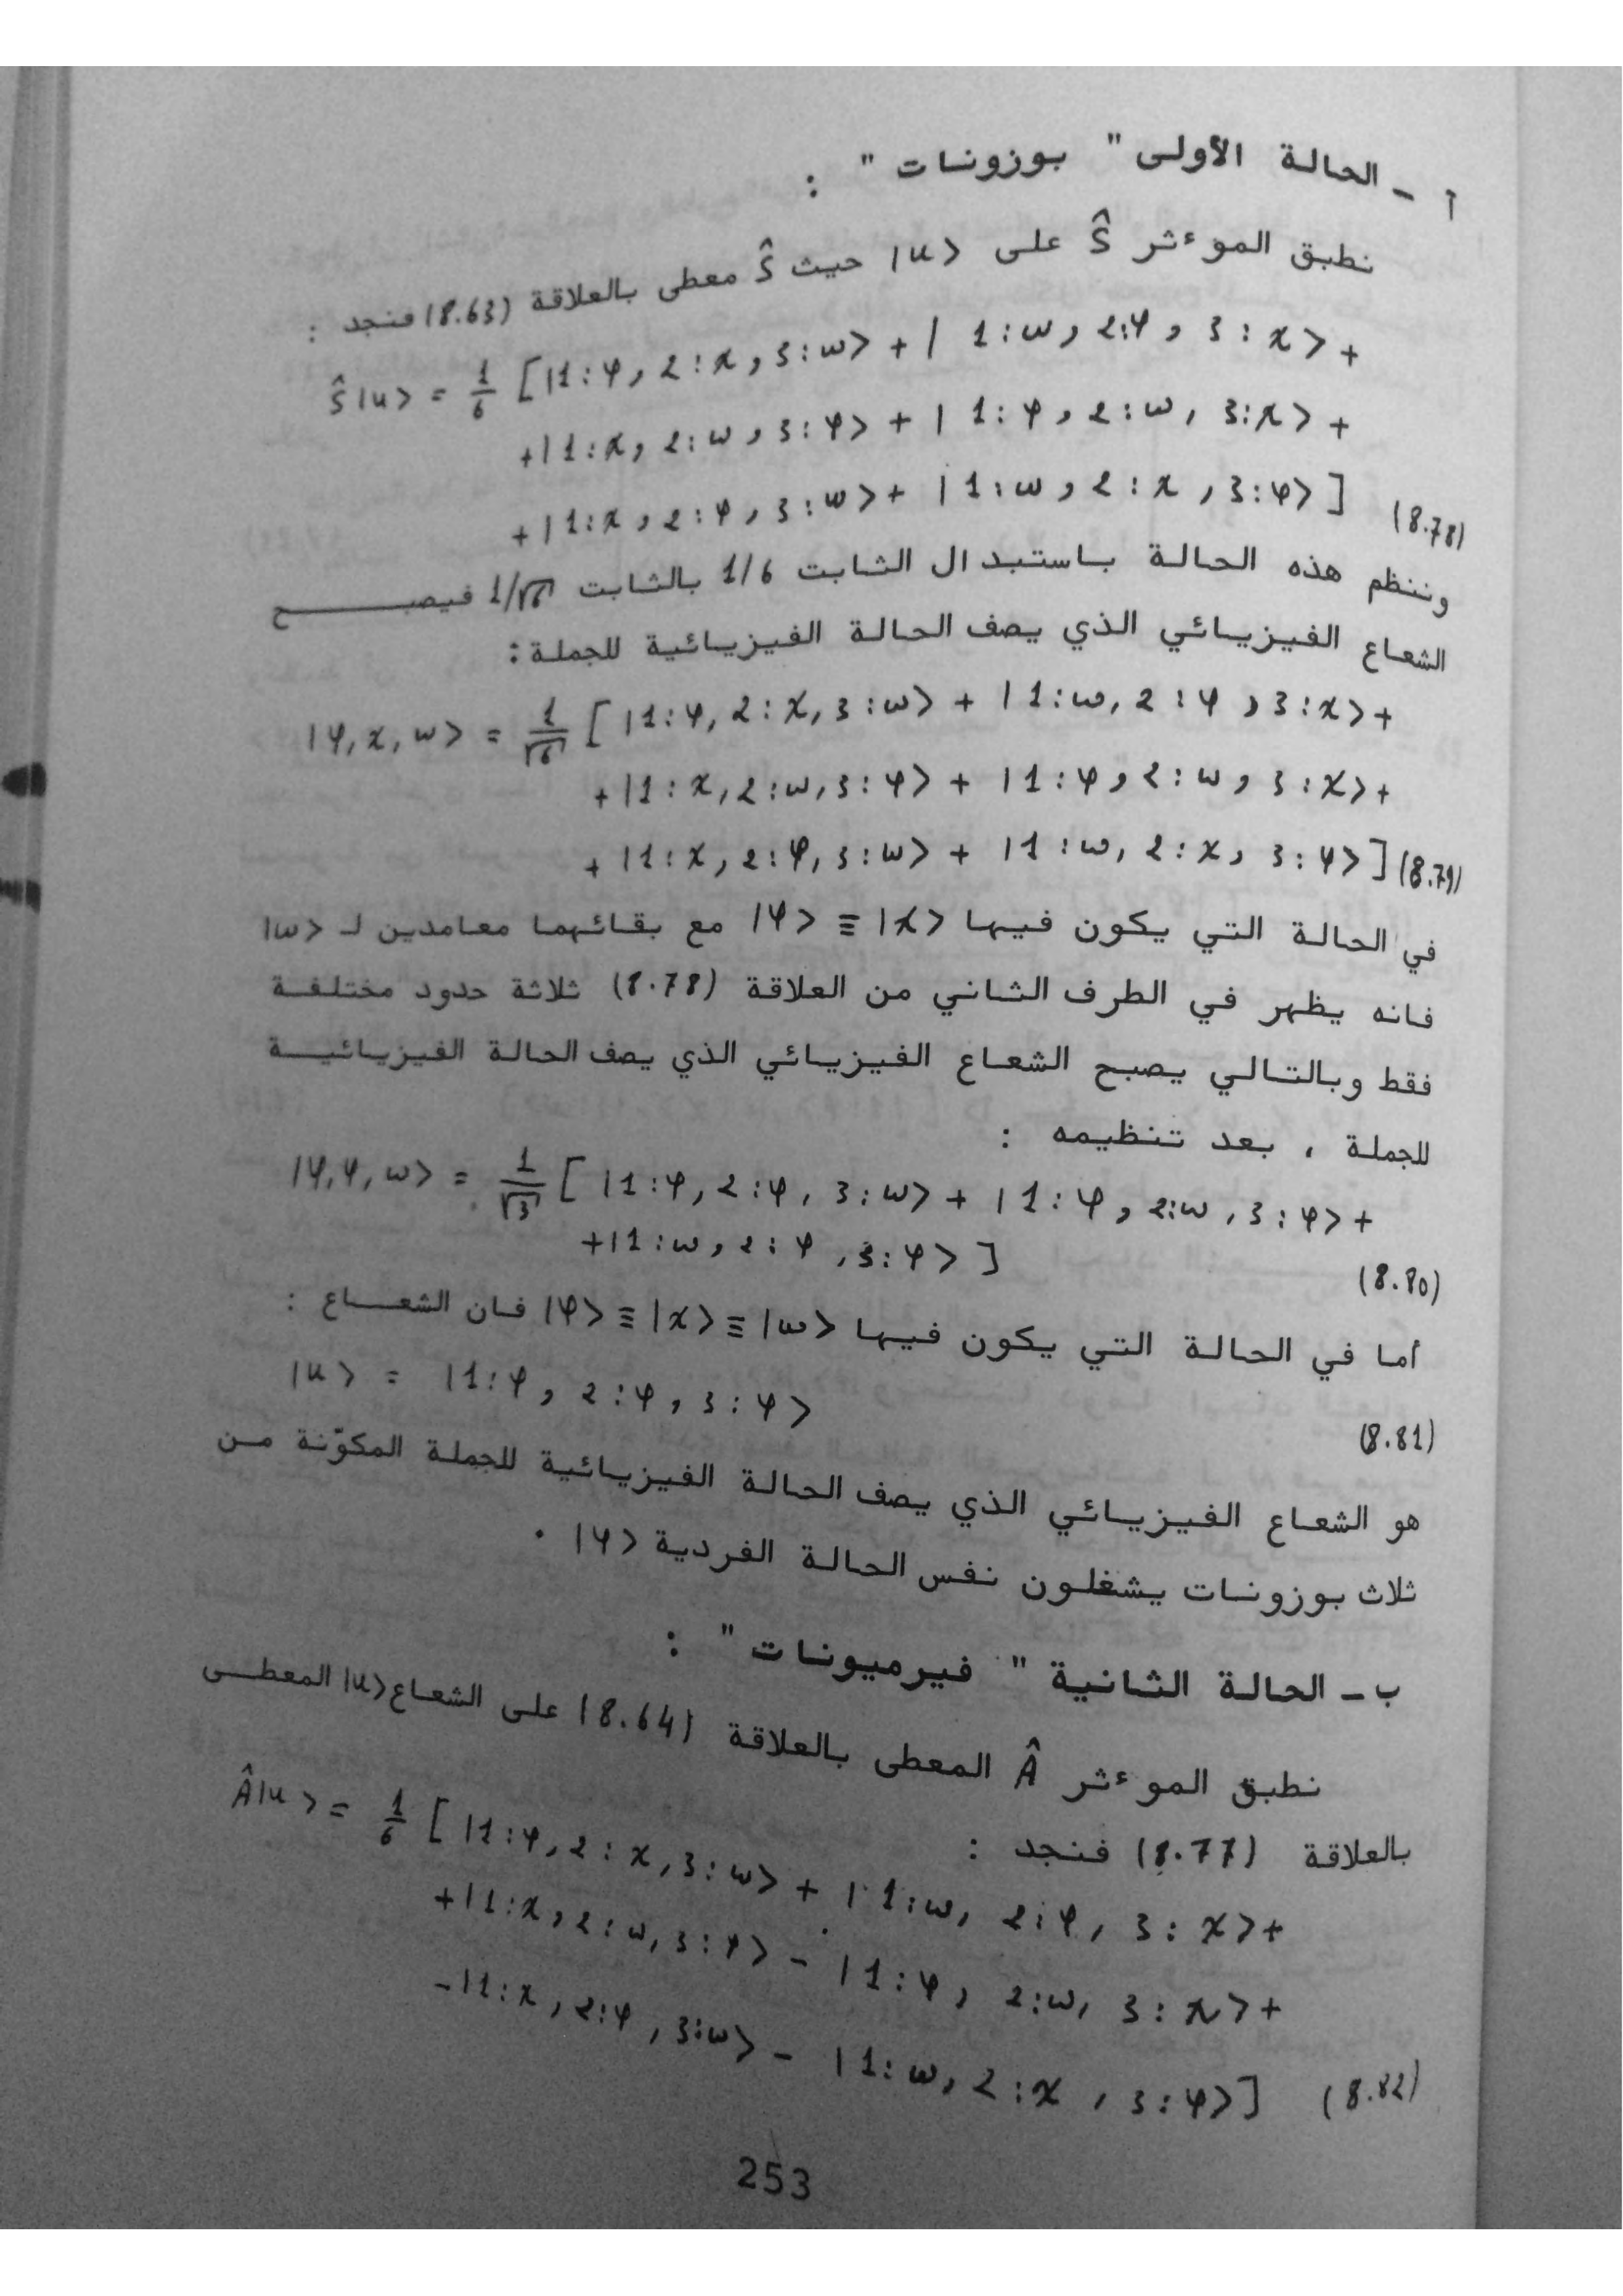 أ - الحالة الأولى " بوزونات " :
نطبق الموءثر Ŝ على |u> حيث Ŝ معطى بالعلاقة (8.63) فنجد :
Ŝ|u> = 1/6 [|1:φ, 2:χ, 3:ω> + |1:ω, 2:φ, 3:χ> +
+|1:χ, 2:ω, 3:φ> + |1:φ, 2:ω, 3:χ> +
+|1:χ, 2:φ, 3:ω> + |1:ω, 2:χ, 3:φ>] (8.78)
وننظم هذه الحالة باستبدال الثابت 1/6 بالثابت 1/√6 فيصبح
الشعاع الفيزيائي الذي يصف الحالة الفيزيائية للجملة :
|φ, χ, ω> = 1/√6 [|1:φ, 2:χ, 3:ω> + |1:ω, 2:φ, 3:χ> +
+|1:χ, 2:ω, 3:φ> + |1:φ, 2:ω, 3:χ> +
+|1:χ, 2:φ, 3:ω> + |1:ω, 2:χ, 3:φ>] (8.79)
في الحالة التي يكون فيها |φ> ≡ |χ> مع بقائهما معامدين لـ |ω>
فانه يظهر في الطرف الثاني من العلاقة (8.78) ثلاثة حدود مختلفة
فقط وبالتالي يصبح الشعاع الفيزيائي الذي يصف الحالة الفيزيائية
للجملة ، بعد تنظيمه :
|φ, φ, ω> = 1/√3 [|1:φ, 2:φ, 3:ω> + |1:φ, 2:ω, 3:φ> +
+|1:ω, 2:φ, 3:φ>] (8.80)
أما في الحالة التي يكون فيها |φ> ≡ |χ> ≡ |ω> فان الشعاع :
|u> = |1:φ, 2:φ, 3:φ> (8.81)
هو الشعاع الفيزيائي الذي يصف الحالة الفيزيائية للجملة المكوّنة من
ثلاث بوزونات يشغلون نفس الحالة الفردية |φ> .
ب - الحالة الثانية " فيرميونات " :
نطبق الموءثر Â المعطى بالعلاقة (8.64) على الشعاع |u> المعطى
بالعلاقة (8.77) فنجد :
Â|u> = 1/6 [|1:φ, 2:χ, 3:ω> + |1:ω, 2:φ, 3:χ> +
+|1:χ, 2:ω, 3:φ> - |1:φ, 2:ω, 3:χ> +
-|1:χ, 2:φ, 3:ω> - |1:ω, 2:χ, 3:φ>] (8.82)
253